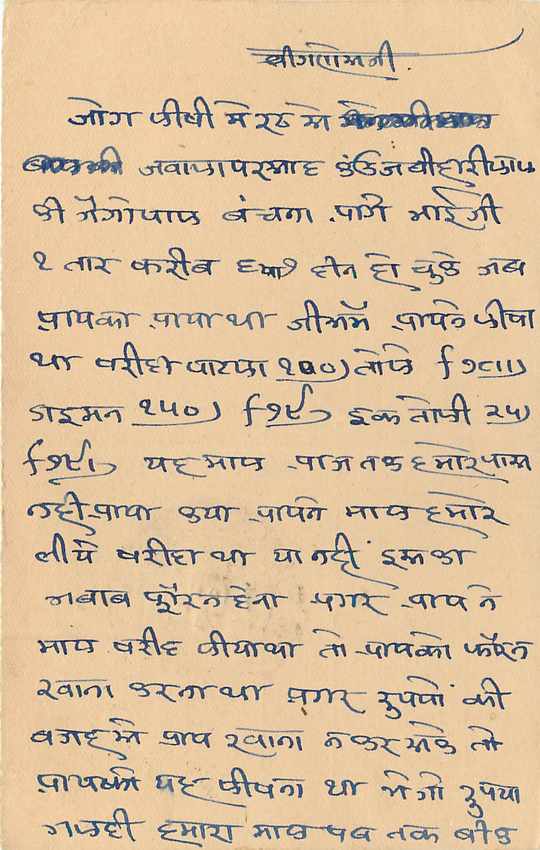 श्रीगनेसजी
जोग लीखी मेरठ से
जवालापरसाद कुंजबीहारीलाल
की जैगोपाल बंचना आगे भाईजी
१ तार करीब दीन हो चुके जब
आपका आया था जीसमें आपने लीखा
था खरीदा वाटफा १००) तोले
डाइमन १५०) इक तोफी २५)
यह माल आज तक हमारे पास
नही आया क्या आपने माल हमारे
लीये खरीदा था या नहीं इसका
जबाब फौरन देना अगर आप ने
माल खरीद लीया था तो आपको फौरन
रवाना करना था अगर रुपयों की
वजह से आप रवाना न कर सके तो
आपको यह लीखना था भेजो रुपया
जलदी हमारा माल अब तक बीक